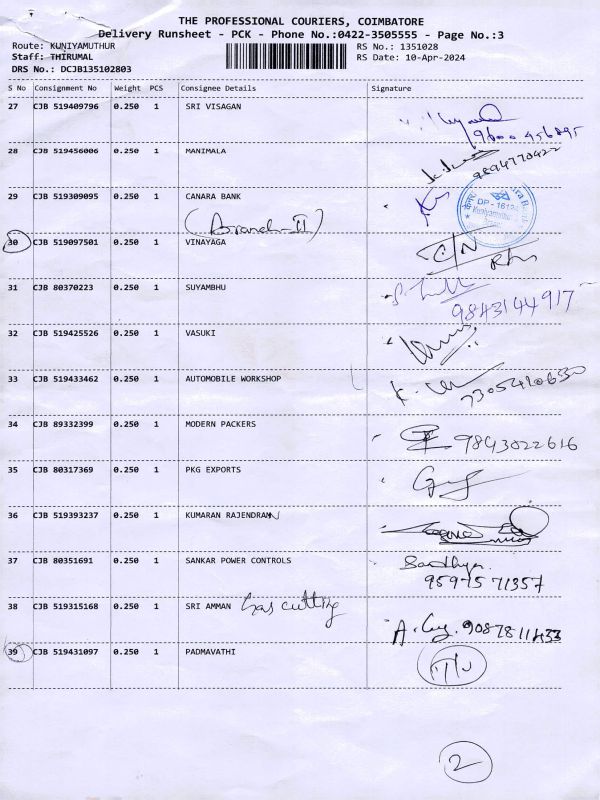 THE PROFESSIONAL COURIERS, COIMBATORE
Delivery Runsheet - PCK - Phone No.:0422-3505555 - Page No.:3
Route: KUNIYAMUTHUR
RS No.: 1351028
Staff: THIRUMAL
RS Date: 10-Apr-2024
DRS No.: DCJB135102803
S No Consignment No Weight PCS Consignee Details Signature
27 CJB 519409796 0.250 1 SRI VISAGAN
9600456895
28 CJB 519456006 0.250 1 MANIMALA
9894770422
29 CJB 519309095 0.250 1 CANARA BANK
(Branch-II)
30 CJB 519097501 0.250 1 VINAYAGA
C/N
31 CJB 80370223 0.250 1 SUYAMBHU
9843144917
32 CJB 519425526 0.250 1 VASUKI
33 CJB 519433462 0.250 1 AUTOMOBILE WORKSHOP
7305410630
34 CJB 89332399 0.250 1 MODERN PACKERS
9843022616
35 CJB 80317369 0.250 1 PKG EXPORTS
36 CJB 519393237 0.250 1 KUMARAN RAJENDRAN
37 CJB 80351691 0.250 1 SANKAR POWER CONTROLS
Sandhya
9597571357
38 CJB 519315168 0.250 1 SRI AMMAN Gas cutting
9087811433
39 CJB 519431097 0.250 1 PADMAVATHI
2